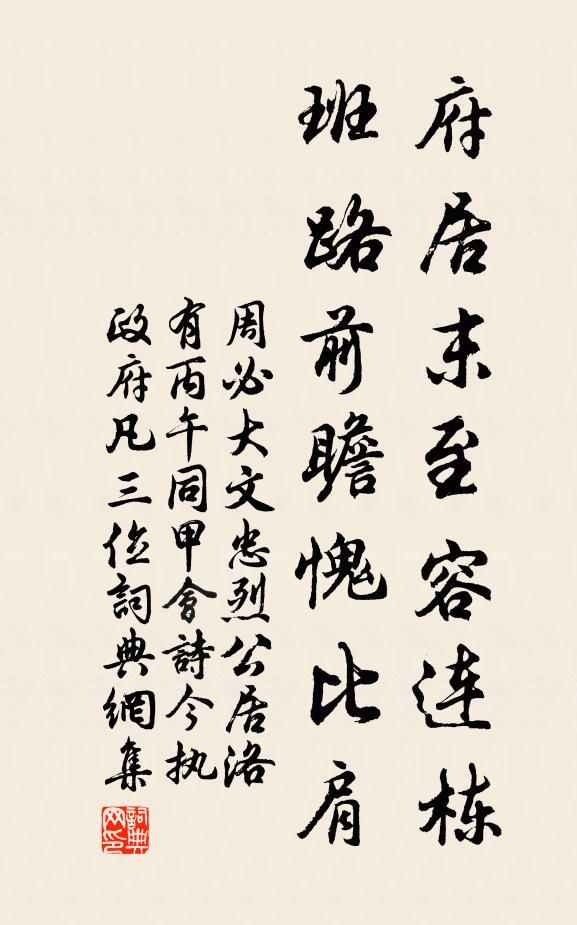 府居末至容连栋
班路前瞻愧比肩
周必大文忠烈公居洛
有丙午同甲會詩今执
政府凡三位詞典網集
詞典网印